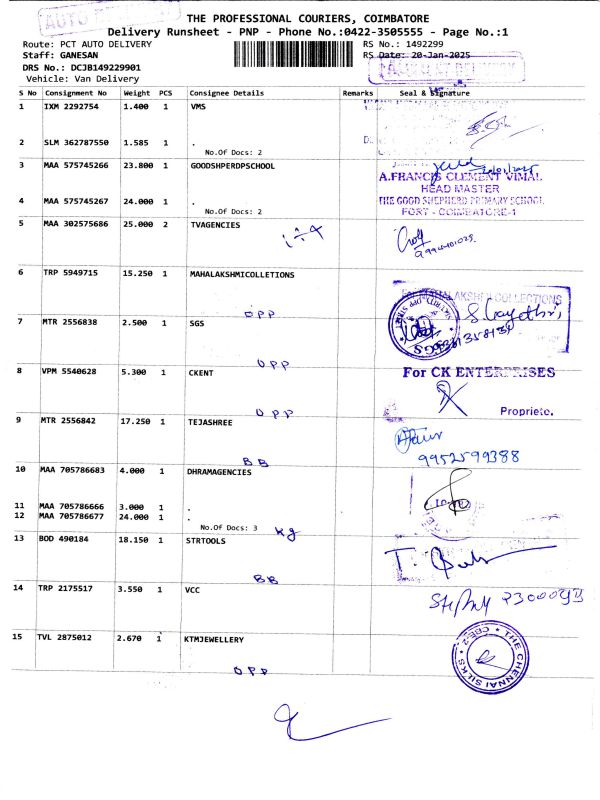 AUTO
THE PROFESSIONAL COURIERS, COIMBATORE
Delivery Runsheet - PNP - Phone No.:0422-3505555 - Page No.:1
Route: PCT AUTO DELIVERY RS No.: 1492299
Staff: GANESAN RS Date: 20-Jan-2025
DRS No.: DCJB149229901
Vehicle: Van Delivery
S No Consignment No Weight PCS Consignee Details Remarks Seal & Signature
1 IXM 2292754 1.400 1 VMS
2 SLM 362787550 1.585 1 .
No.Of Docs: 2
3 MAA 575745266 23.800 1 GOODSHPERDPSCHOOL
A.FRANCIS CLEMENT VIMAL
HEAD MASTER
4 MAA 575745267 24.000 1 . THE GOOD SHEPHERD PRIMARY SCHOOL
No.Of Docs: 2 FORT - COIMBATORE-1
5 MAA 302575686 25.000 2 TVAGENCIES
6 TRP 5949715 15.250 1 MAHALAKSHMICOLLETIONS
OPP
7 MTR 2556838 2.500 1 SGS
OPP
8 VPM 5540628 5.300 1 CKENT For CK ENTERPRISES
OPP Propriete.
9 MTR 2556842 17.250 1 TEJASHREE
9952599388
BB
10 MAA 705786683 4.000 1 DHRAMAGENCIES
11 MAA 705786666 3.000 1 .
12 MAA 705786677 24.000 1 .
No.Of Docs: 3 kg
13 BOD 490184 18.150 1 STRTOOLS
BB
14 TRP 2175517 3.550 1 VCC
15 TVL 2875012 2.670 1 KTMJEWELLERY
THE CHENNAI SILKS CBE-2
OPP